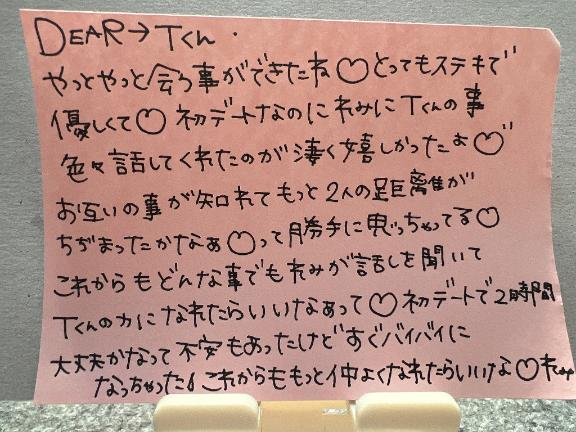 DEAR→Tくん.
やっとやっと会う事ができたね♡とってもステキで
優しくて♡初デートなのにれみにTくんの事
色々話してくれたのが凄く嬉しかったよ♡
お互いの事が知れてもっと2人の足距離が
ちぢまったかなぁ♡って勝手に思っちゃってる♡
これからもどんな事でもれみが話しを聞いて
Tくんの力になれたらいいなぁって♡初デートで2時間
大丈夫かなって不安もあったけどすぐバイバイに
なっちゃった!これからももっと仲よくなれたらいいな♡れみ